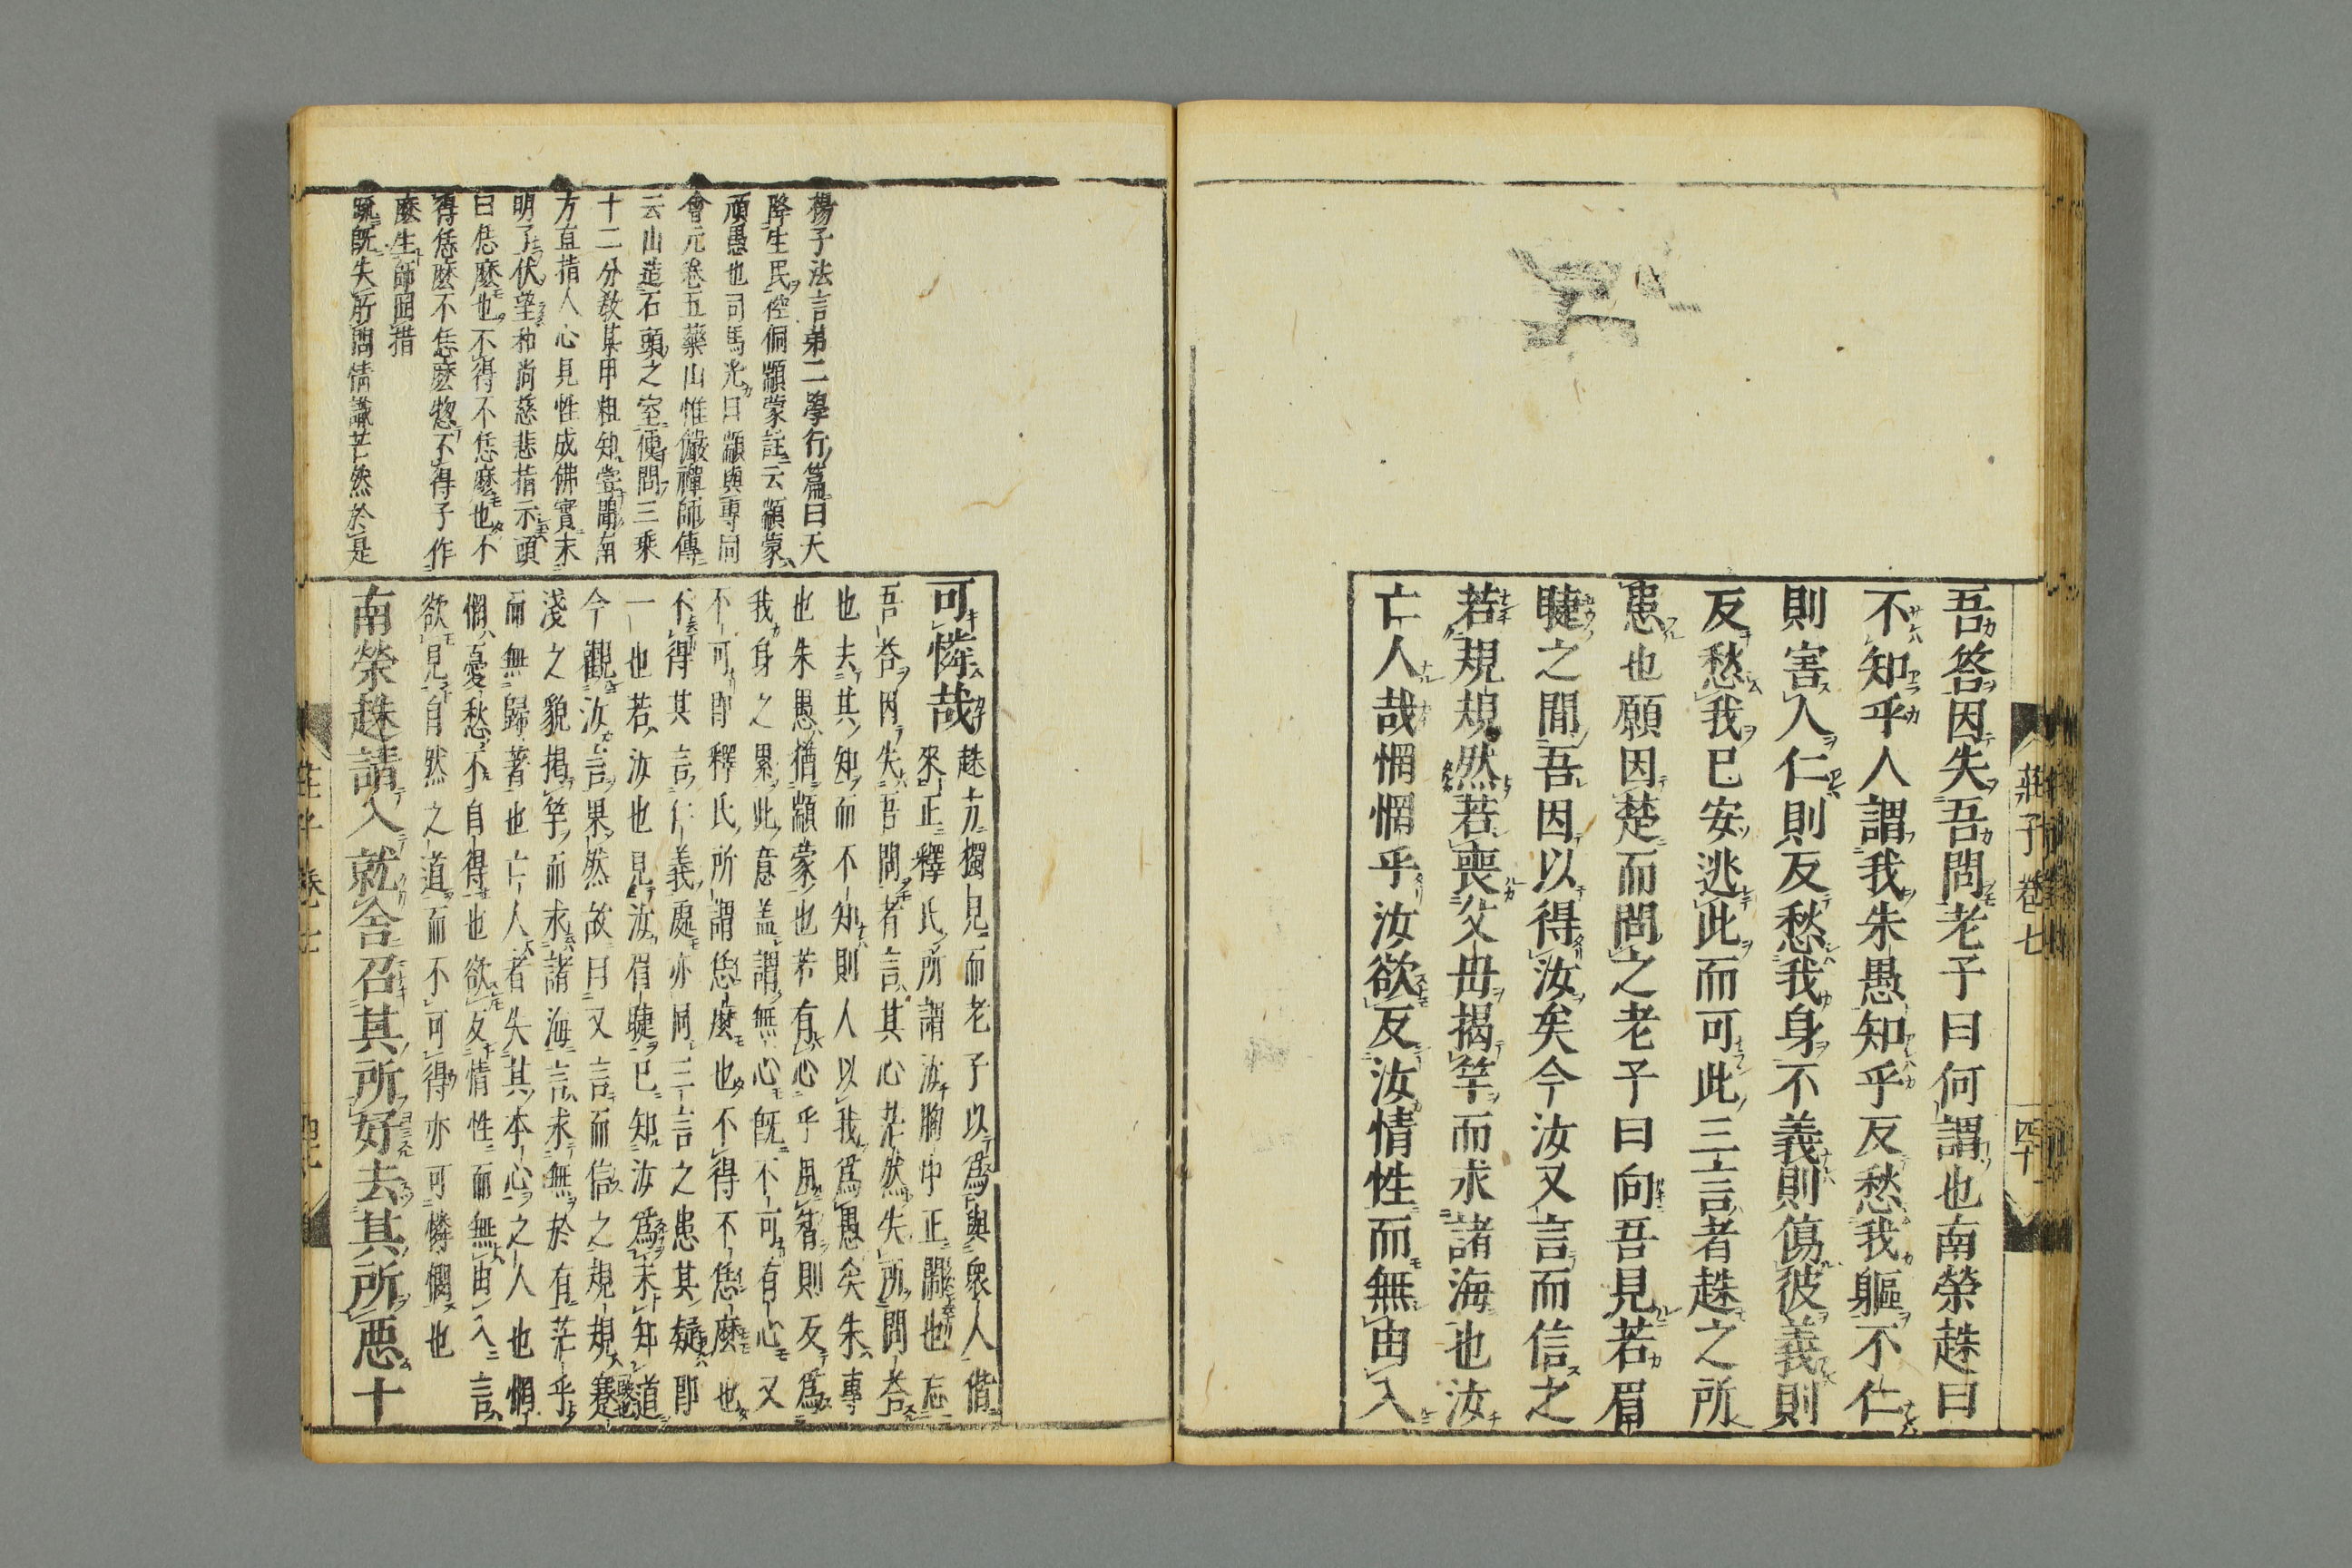 莊子卷七
四十
吾答因失吾問老子曰何謂也南榮趎曰
不知乎人謂我朱愚知乎反愁我軀不仁
則害人仁則反愁我身不義則傷彼義則
反愁我已安逃此而可此三言者趎之所
患也願因楚而問之老子曰向吾見若眉
睫之間吾因以得汝矣今汝又言而信之
若規規然若喪父母揭竿而求諸海也汝
亡人哉惘惘乎汝欲反汝情性而無由入
楊子法言第二學行篇曰天
降生民倥侗顓蒙註云顓蒙
頑愚也司馬光曰顓與專同
會元卷五藥山惟儼禪師傳
云山造石頭之室便問三乘
十二分教某甲粗知嘗聞南
方直指人心見性成佛實未
明了伏望和尚慈悲指示頭
曰恁麼也不得不恁麼也不
得恁麼不恁麼惣不得子作
麼生師罔措
既失所問情識茫然於是
可憐哉
趎方獨見而老子以爲與衆人偕
來正釋氏所謂汝胸中正鬧也忘
吾答因失吾問者言其心茫然失所問答
也去其知而不知則人以我爲愚矣朱專
也朱愚猶顓蒙也若有心乎用智則反爲
我身之累此意盖謂無心既不可有心又
不可即釋氏所謂恁麼也不得不恁麼也
不得其言仁義處亦同三言之患其疑即
一也若汝也見汝眉睫已知汝爲未知道
今觀汝言果然故曰又言而信之規規蹇
淺之貌揭竿而求諸海言求無於有茫乎
而無歸著也亡人者失其本心之人也惘
惘憂愁不自得也欲反情性而無由入言
欲見自然之道而不可得亦可憐憫也
南榮趎請入就舍召其所好去其所惡十